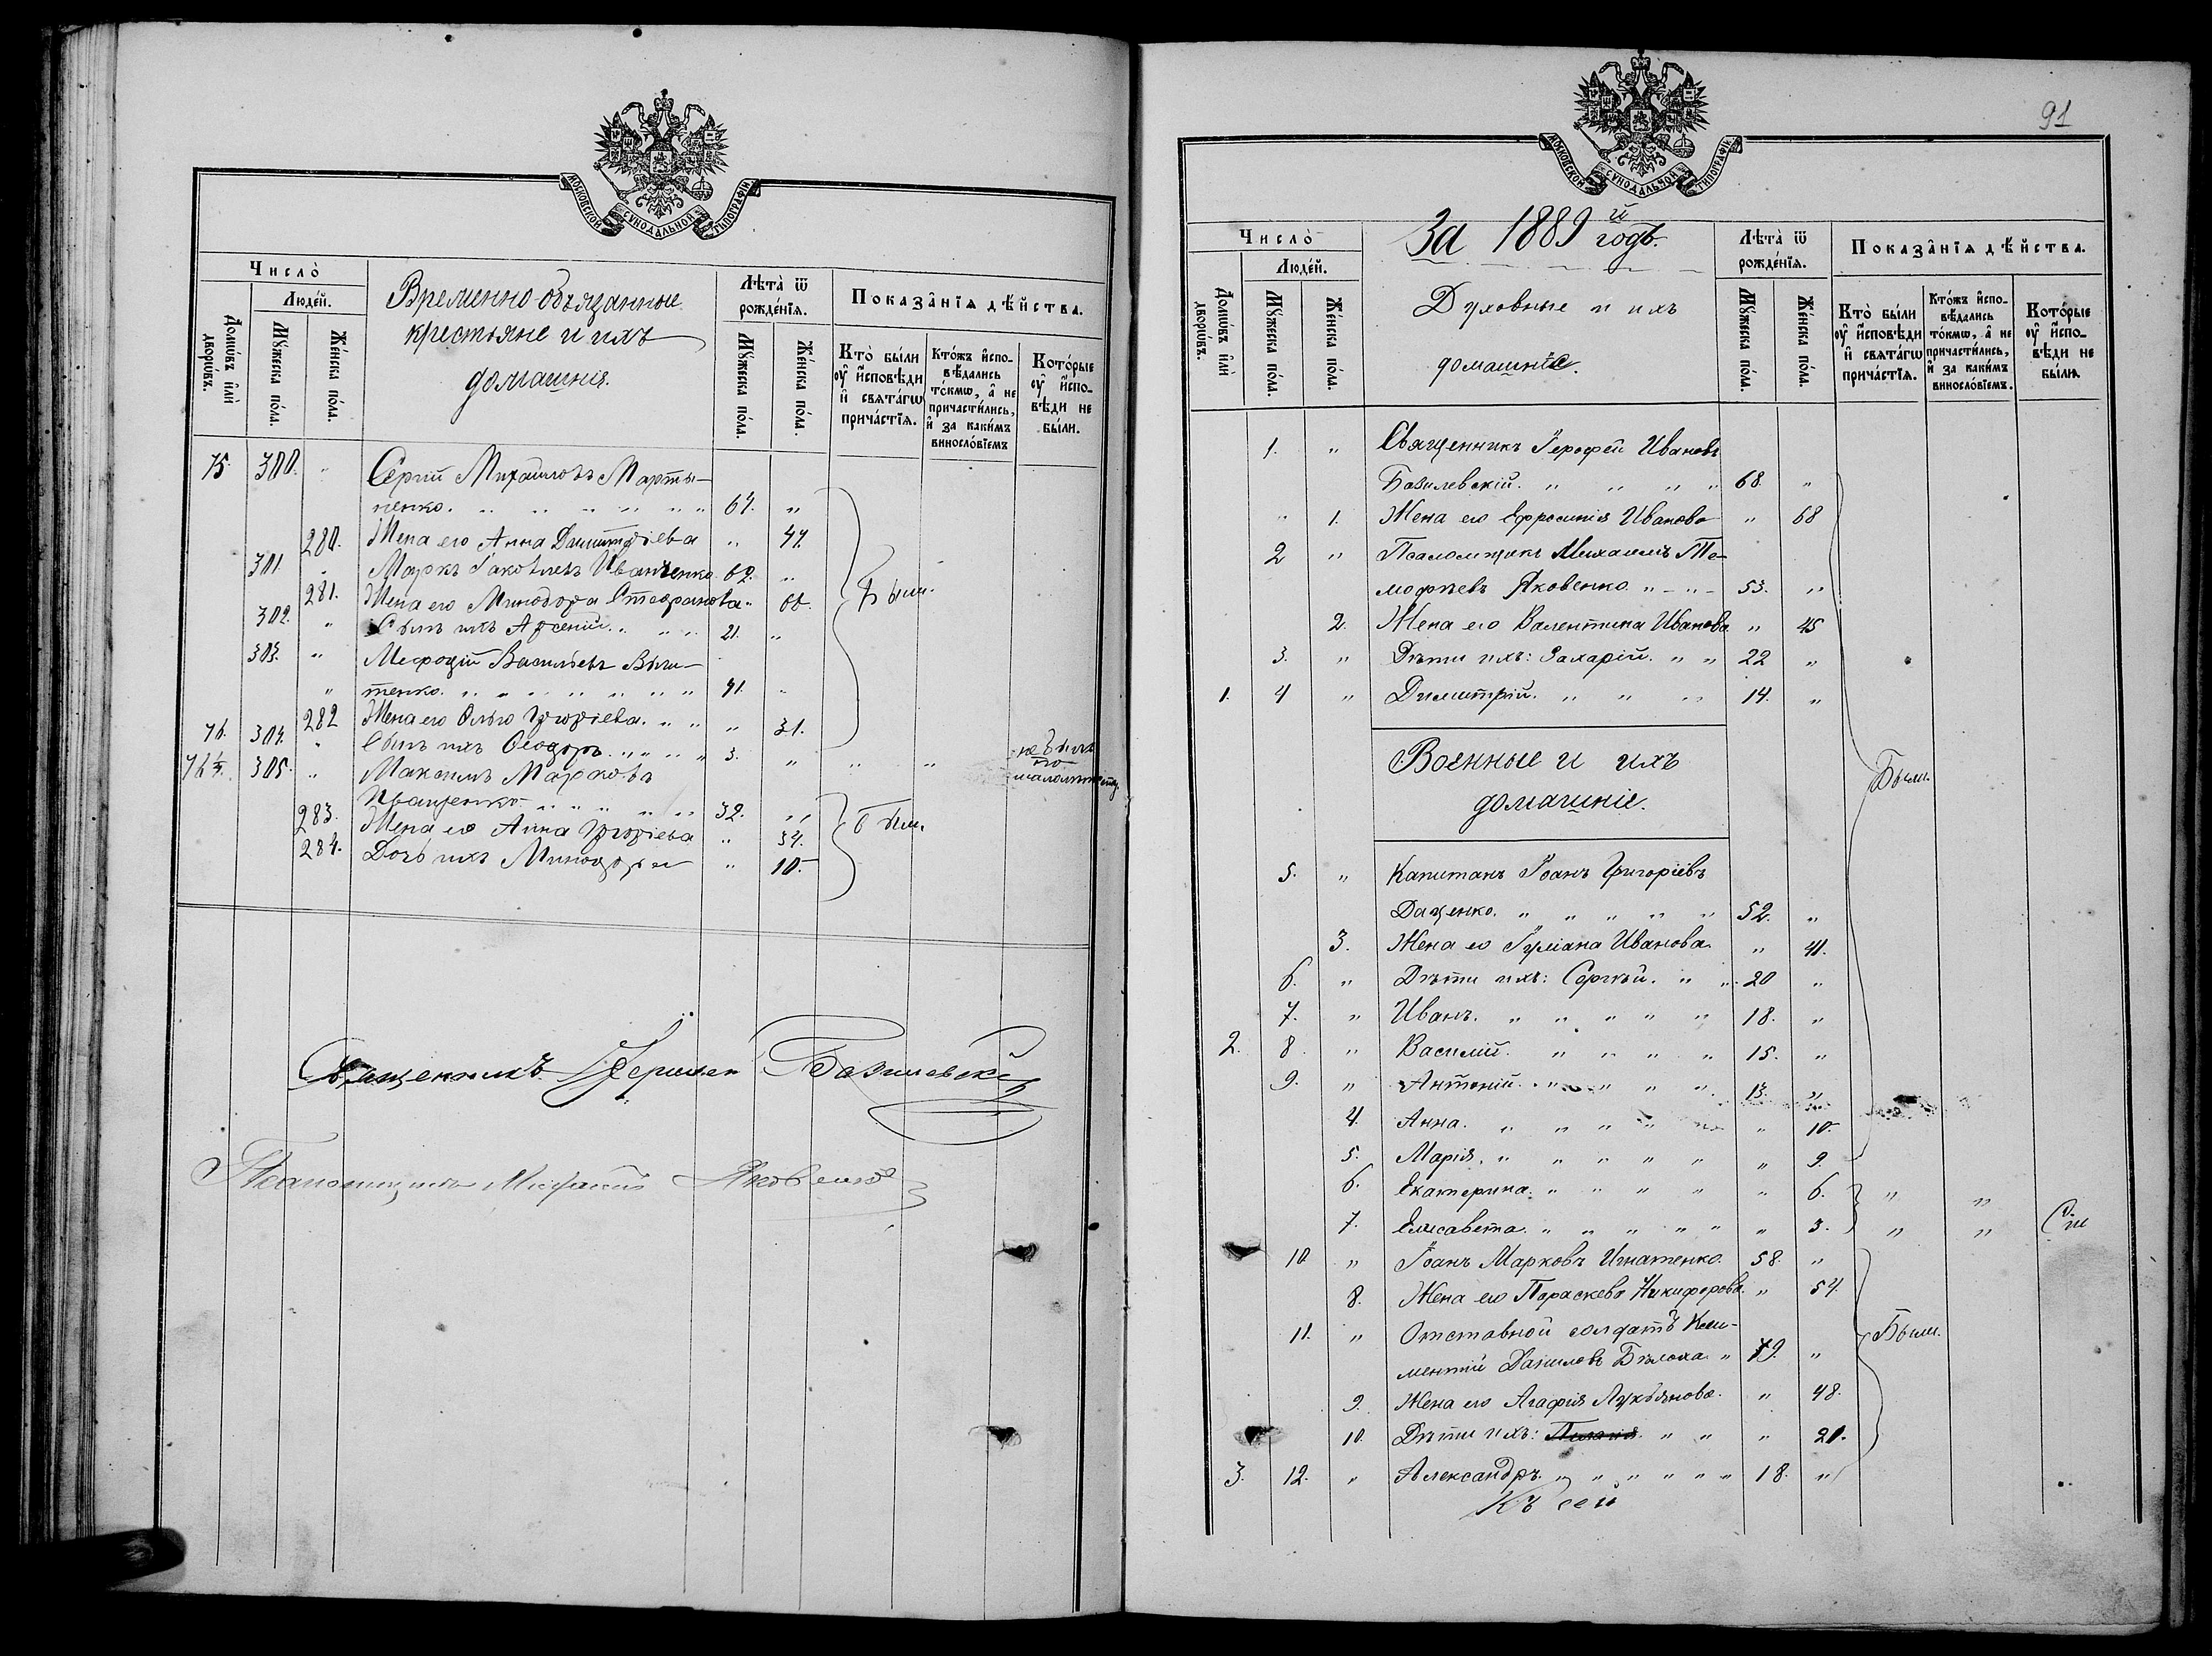 МОСКОВСКОЙ СѴНОДАЛЬНОЙ ТИПОГРАФІИ
Число̀
Людéй.
Домѡ́въ и҆лѝ дворѡ́въ.
Мꙋ́жеска по́ла.
Же́нска по́ла.
Временно обязанные
крестьяне и ихъ
домашнія.
Лѣ́та ѿ рождéнїѧ.
Мꙋ́жеска по́ла.
Же́нска по́ла.
Показа̂нїѧ дѣ́йства.
Кто̀ бы́ли ᲂу҆ и҆́сповѣди и҆ свѧта́гѡ прича́стїѧ.
Кто́жъ и҆спо-
вѣ́дались
то́кмѡ, а҆ не
причасти́лись,
и҆ за каки́мъ
винослóвїемъ
Кото́рые ᲂу҆ и҆́спо-
вѣди не
бы́ли.
75. 300. " Сергій Михаиловъ Марты-
ненко. " " " " " 64. "
280. Жена его Анна Димитріева " 44.
301. " Маркъ Іаковлевъ Иванченко 62. "
281. Жена его Минодора Стефанова " 60. Были.
302. " Сынъ ихъ Арсеній. " " 21. "
303. " Мефодій Васильевъ Выли-
тенко. " " " " " 41. "
282 Жена его Ольга Григоріева. " " " 31.
76. 304. " Сынъ ихъ Ѳеодоръ. " " " 3. " " " не былъ
по
малолѣтству
76½. 305. " Максимъ Марковъ
Иващенко. " " " " 32. "
283. Жена его Анна Григоріева " 34. были.
284. Дочь ихъ Минодора " 10.
Священникъ Іероѳей Базилевскій
Псаломщикъ Михаилъ Яковенко
91
МОСКОВСКОЙ СѴНОДАЛЬНОЙ ТИПОГРАФІИ
Число̀
Людéй.
Домѡ́въ и҆лѝ дворѡ́въ.
Мꙋ́жеска по́ла.
Же́нска по́ла.
За 1889й годъ.
Духовные и ихъ
домашніе.
Лѣ́та ѿ рождéнїѧ.
Мꙋ́жеска по́ла.
Же́нска по́ла.
Показа̂нїѧ дѣ́йства.
Кто̀ бы́ли ᲂу҆ и҆́сповѣди и҆ свѧта́гѡ прича́стїѧ.
Кто́жъ и҆спо-
вѣ́дались
то́кмѡ, а҆ не
причасти́лись,
и҆ за каки́мъ
винослóвїемъ.
Кото́рые ᲂу҆ и҆́спо-
вѣди не
бы́ли.
1. " Священникъ Іерофей Ивановъ
Базилевскій. " " " " 68. "
" 1. Жена его Ефросинія Иванова " 68
2 " Псаломщикъ Михаилъ Ти-
мофѣевъ Яковенко. " - " - 53. "
2. Жена его Валентина Иванова. " 45
3. " Дѣти ихъ: Захарій. " " 22 "
1. 4 " Димитрій. " " " 14. "
Военные и ихъ
домашніе.
Были.
5. " Капитанъ Іоанъ Григоріевъ
Даценко. " " " " " 52. "
3. Жена его Іуліана Иванова. " 41.
6. " Дѣти ихъ: Сергѣй. " " 20 "
7. " Иванъ. " " " " " 18. "
2. 8. " Василій. " " " " 15. "
9. " Антоній. " " " " " 13. "
4. Анна. " " " " " " 10.
5. Марія. " " " " " " 9.
6. Екатерина. " " " " " 6. " "
7. Елисавета. " " " " " " 3. " "
10. " Іоанъ Марковъ Игнатенко. 58. "
8. Жена его Параскева Никифорова. " 54.
11. " Отставной солдатъ Кли-
ментій Даниловъ Бѣлоха. " 79. " Были.
9. Жена его Агафія Лукьянова. " 48.
10. Дѣти ихъ: Пелагія. " " " 20.
3. 12. " Александръ. " " " " " 18. "
Къ сей